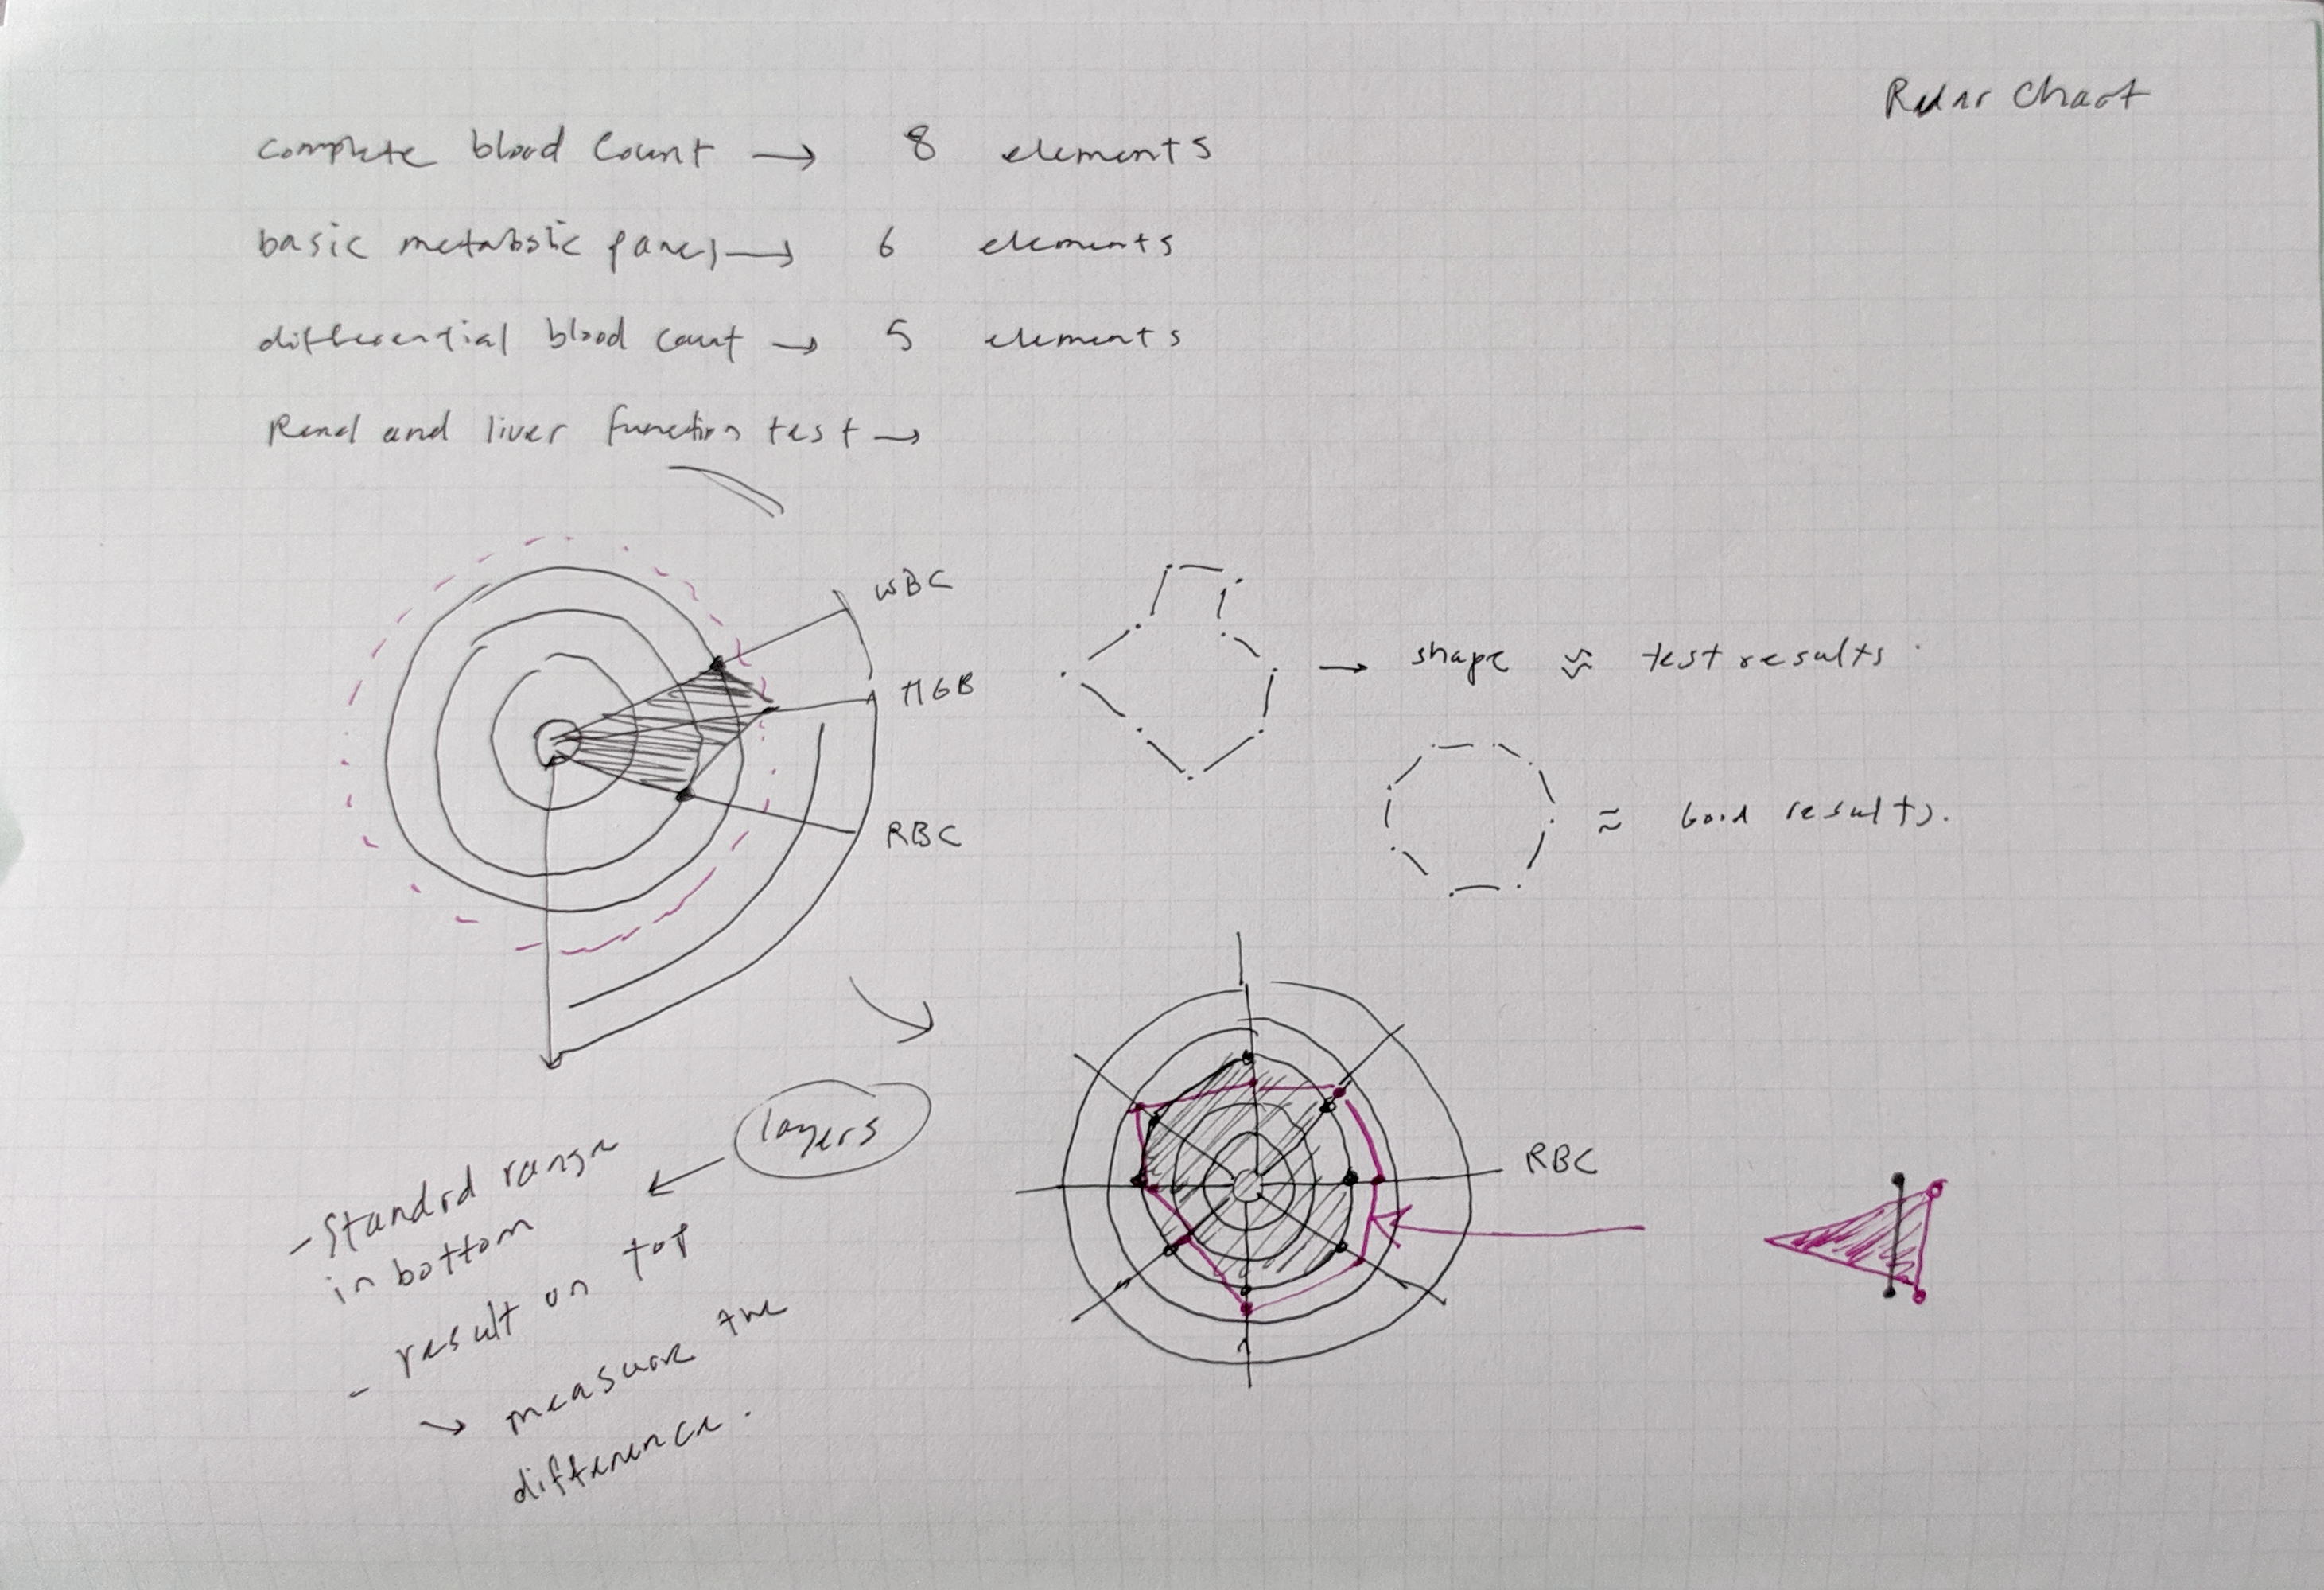 Radar Chart
complete blood Count → 8 elements
basic metabolic panel → 6 elements
differential blood count → 5 elements
Renal and liver function test →
WBC
HGB
RBC
→ shape ≈ test results.
≈ Good results.
layers
- Standard range
in bottom
- result on top
↘ measure the
difference.
RBC